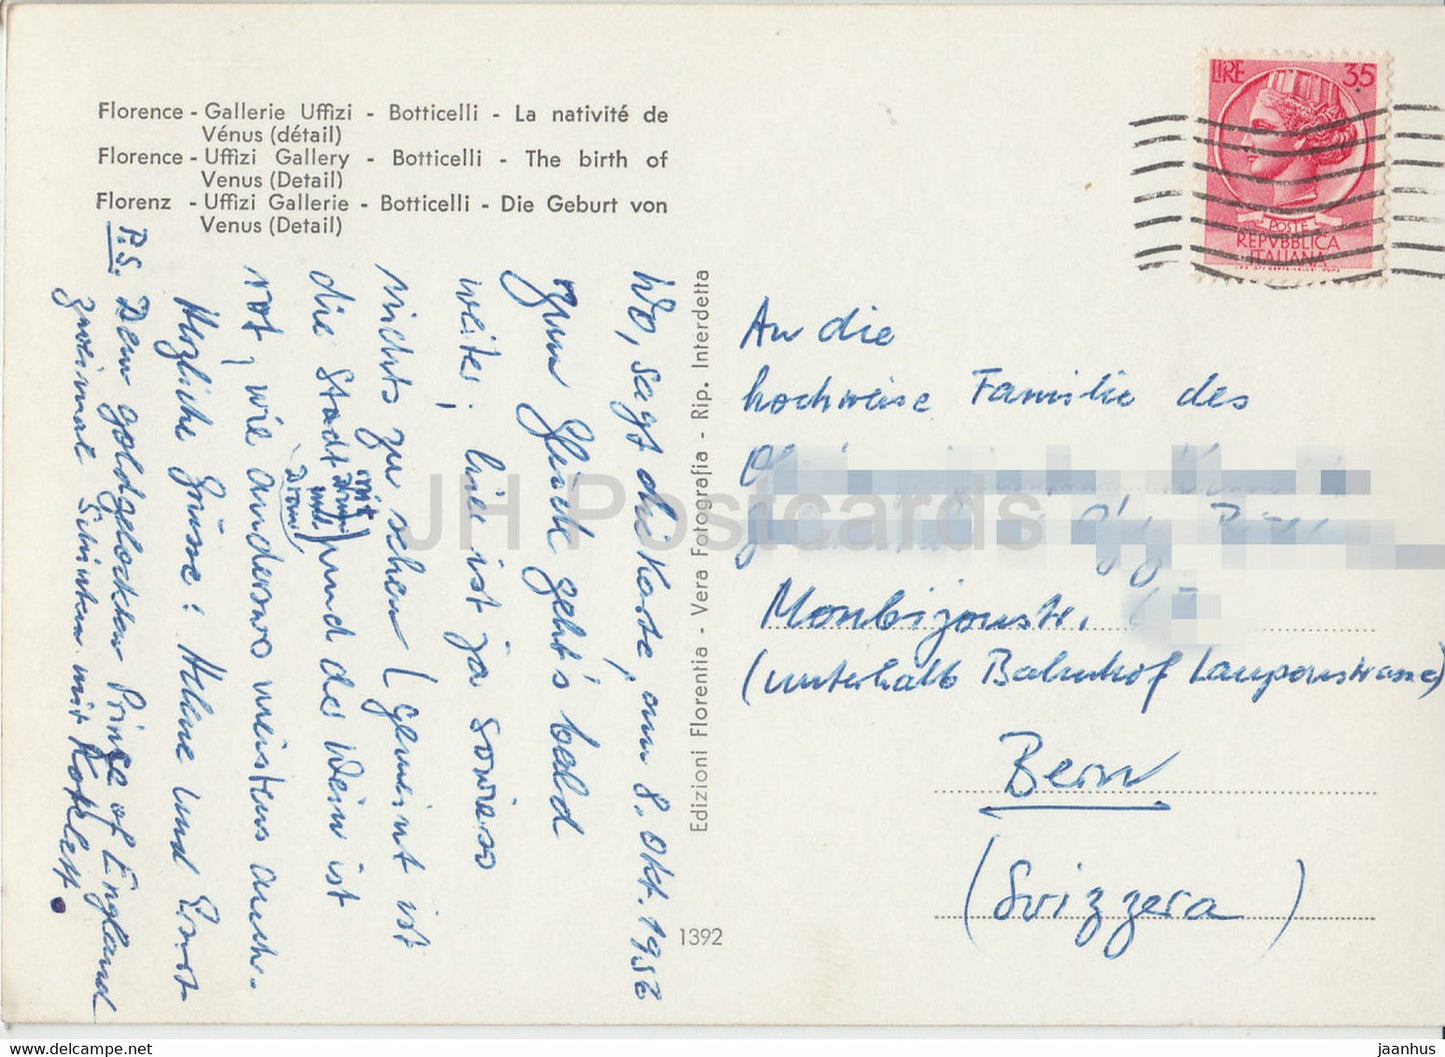 Florence - Gallerie Uffizi - Botticelli - La nativité de
Vénus (détail)
Florence - Uffizi Gallery - Botticelli - The birth of
Venus (Detail)
Florenz - Uffizi Gallerie - Botticelli - Die Geburt von
Venus (Detail)
Wo, sagt die Karte, am 8. Okt. 1956
zum Glück geht's bald
weiter; hie ist ja sowieso
nichts zu sehen (gemeint ist
die Stadt mit
und
Drum
Dran!) und der Wein ist
rot, wie anderswo meistens auch.
Herzliche Grüsse: Helene und Ernst
P.S. Dem goldgelockten Prince of England
zweimal Schinken mit Kotelett.
Edizioni Florentia - Vera Fotografia - Rip. Interdetta
1392
LIRE 35
POSTE
REPVBBLICA
ITALIANA
An die
hochweise Familie des
Monbijoustr.
(unterhalb Bahnhof Laupenstrasse)
Bern
(Svizzera)
JH Postcards
www.jh-postcards.com
jaanhus/